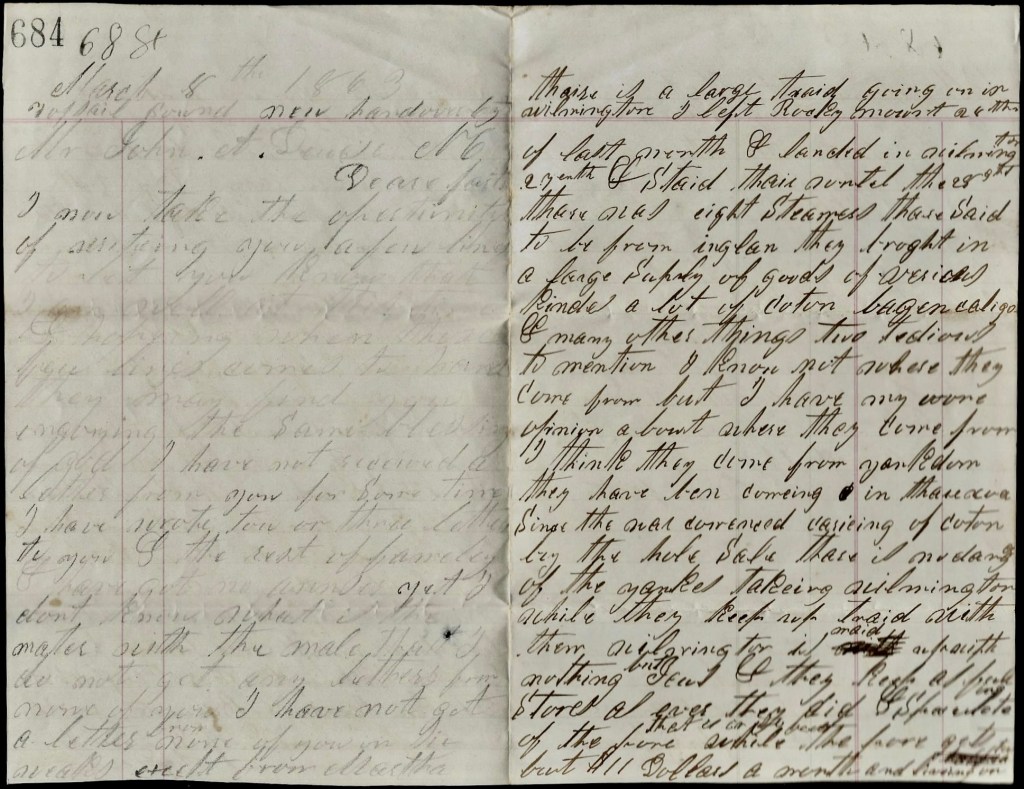 684 68 St
March 8th 1863
Topsail sound new handover
Mr John. A. NC
Dear
I now take the opertunity
of writing you a few lines
to let you know that
I am well
I hopeing when these
few lines comes to hand
they may find you
engoying the same blessing
of god I have not received a
letter from you for some time
I have wrote tow or three letters
to you & the rest of famely
I have got no answer yet I
dont know what is the
mater with the male that I
do not get any letters from
none of you I have not got
a letter from none of you in six
weaks exept from Martha
thaire is a large traid going on in
wilmington I left Rocky mount 26th
of last month & landed in wilmington
27enth & Staid thair untel the 28ght
thare was eight Steamers thare Said
to be from inglan they broght in
a large Suply of goods of verious
kindes a lot of coton bagen calico
& many other things two tedious
to mention I know not where they
Come from but I have my wone
opinion a bout where they Come from
I think they come from yankedom
they have ben comeing in thare ever
Since the war comenced carieing of coton
by the hole Sale thare is no dang
of the yankes takeing wilmington
while they keep up traid with
them wilmington is maid up with
nothing but Jews & they keep
Stores as ever they did & Speculate
of the pore that is caried while the pore gets
but $11 Dollars a month and